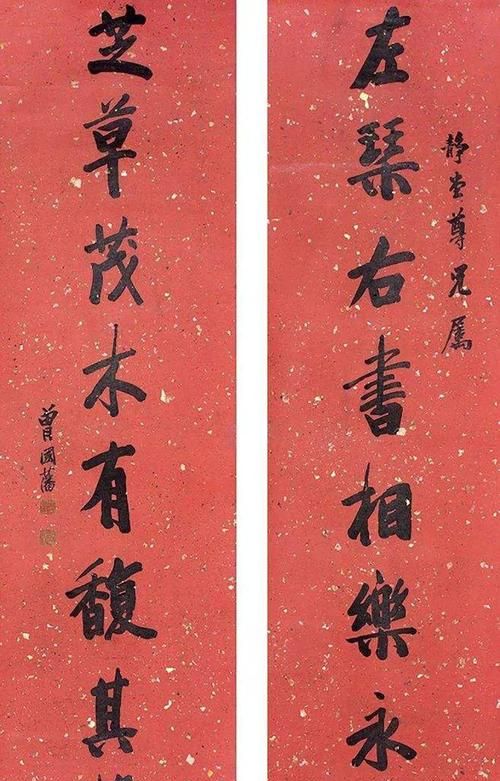 靜堂尊兄屬
左琴右書相樂永
芝草茂木有馥其
曾國藩